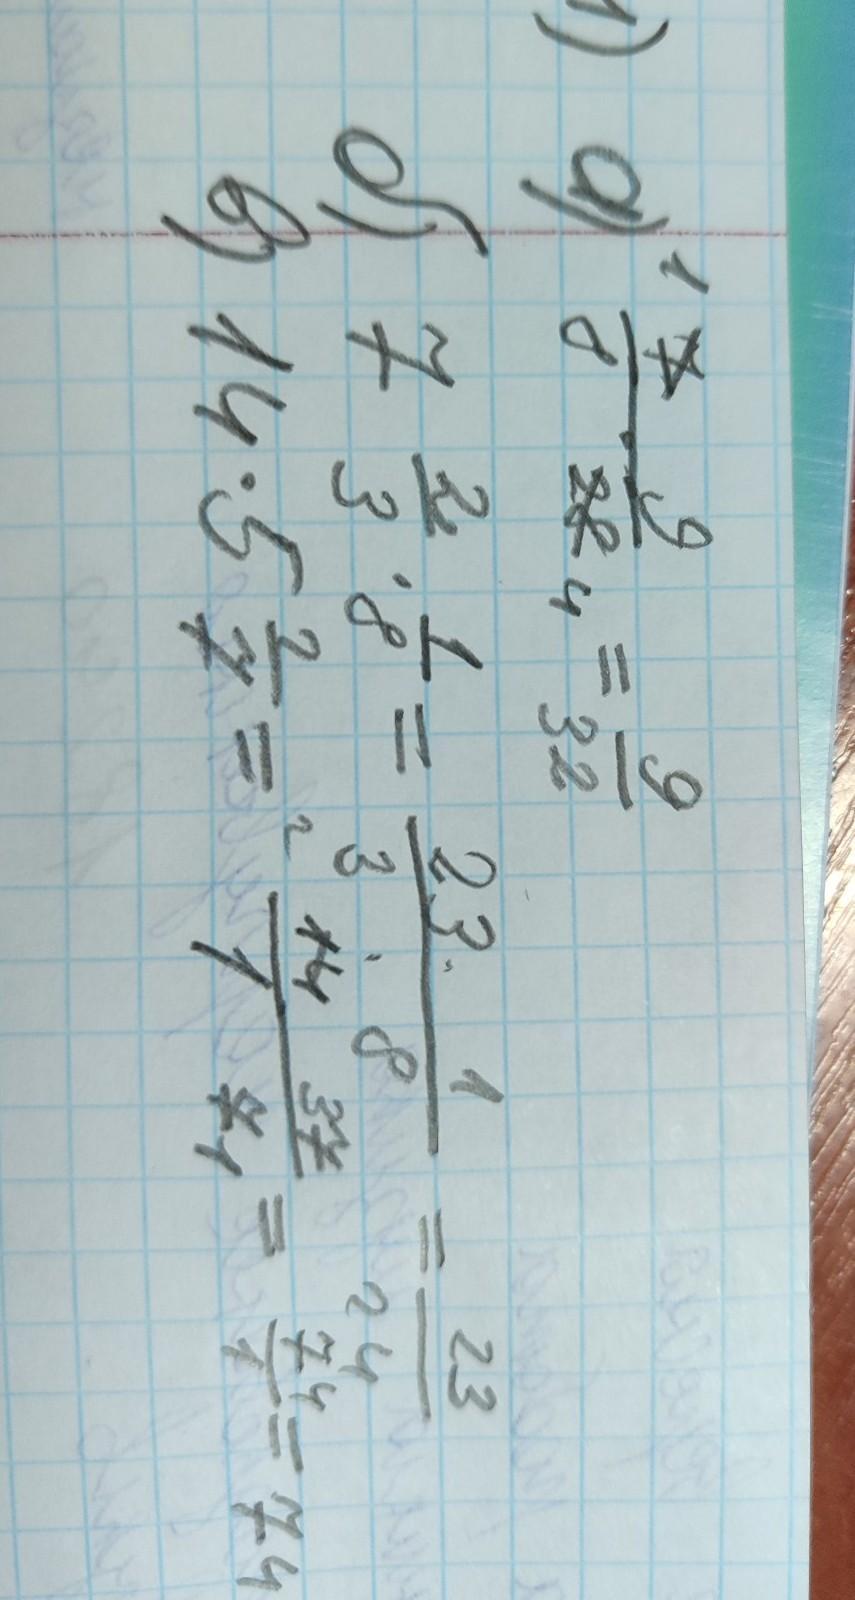 1) а) ¹ 7/8 · 9/28 ₄ = 9/32
б) 7 2/3 · 1/8 = 23 · 1 / 3 · 8 = 23/24
в) 14 · 5 2/7 = ² 14/1 37/7 ₁ = 74/1 = 74